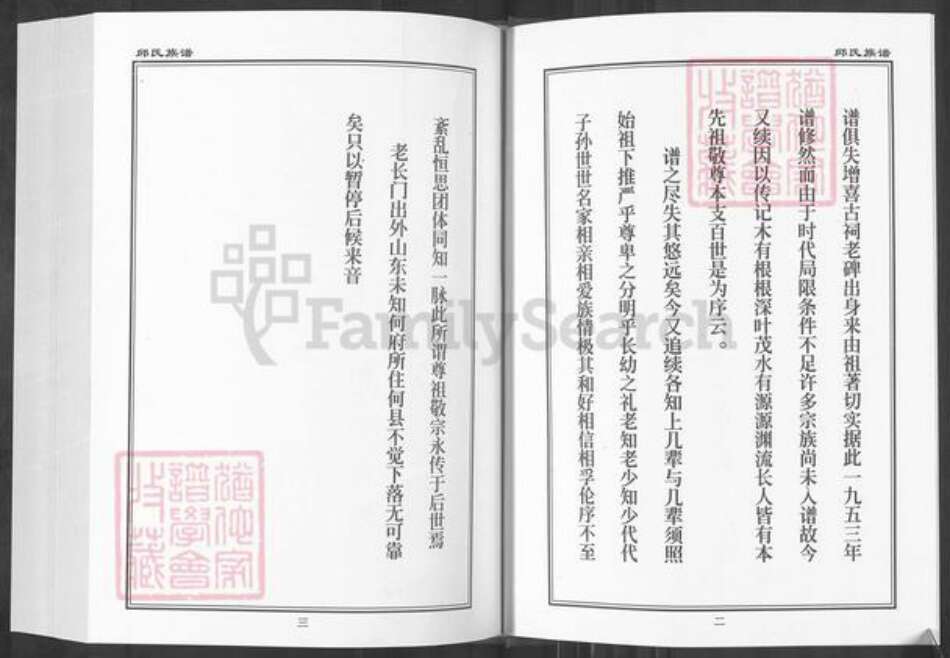 邱氏族谱
谱俱失增喜古祠老碑出身来由祖著切实据此一九五三年
谱修然而由于时代局限条件不足许多宗族尚未入谱故今
又续因以传记木有根根深叶茂水有源源渊流长人皆有本
先祖敬尊本支百世是为序云。
谱之尽失其悠远矣今又追续各知上几辈与几辈须照
始祖下推严乎尊卑之分明乎长幼之礼老知老少知少代代
子孙世世名家相亲相爱族情极其和好相信相孚伦序不至
二
邱氏族谱
紊乱恒思团体同知一脉此所谓尊祖敬宗永传于后世焉
老长门出外山东未知何府所住何县不觉下落无可靠
矣只以暂停后候来音
三
FamilySearch
犹他家
谱学会
收藏
犹他家
譜學會
收藏